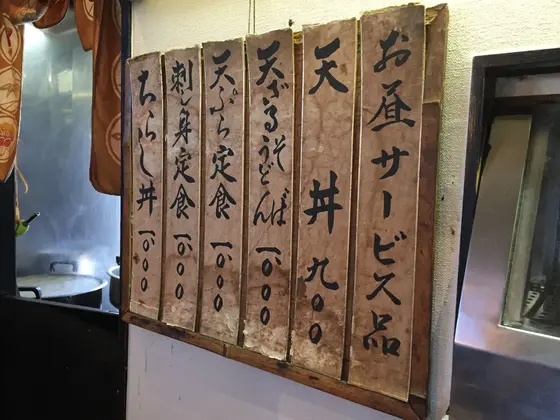 お昼サービス品
天丼 九〇〇
天ざるそばうどん 一、〇〇〇
天ぷら定食 一、〇〇〇
刺し身定食 一、〇〇〇
ちらし丼 一、〇〇〇